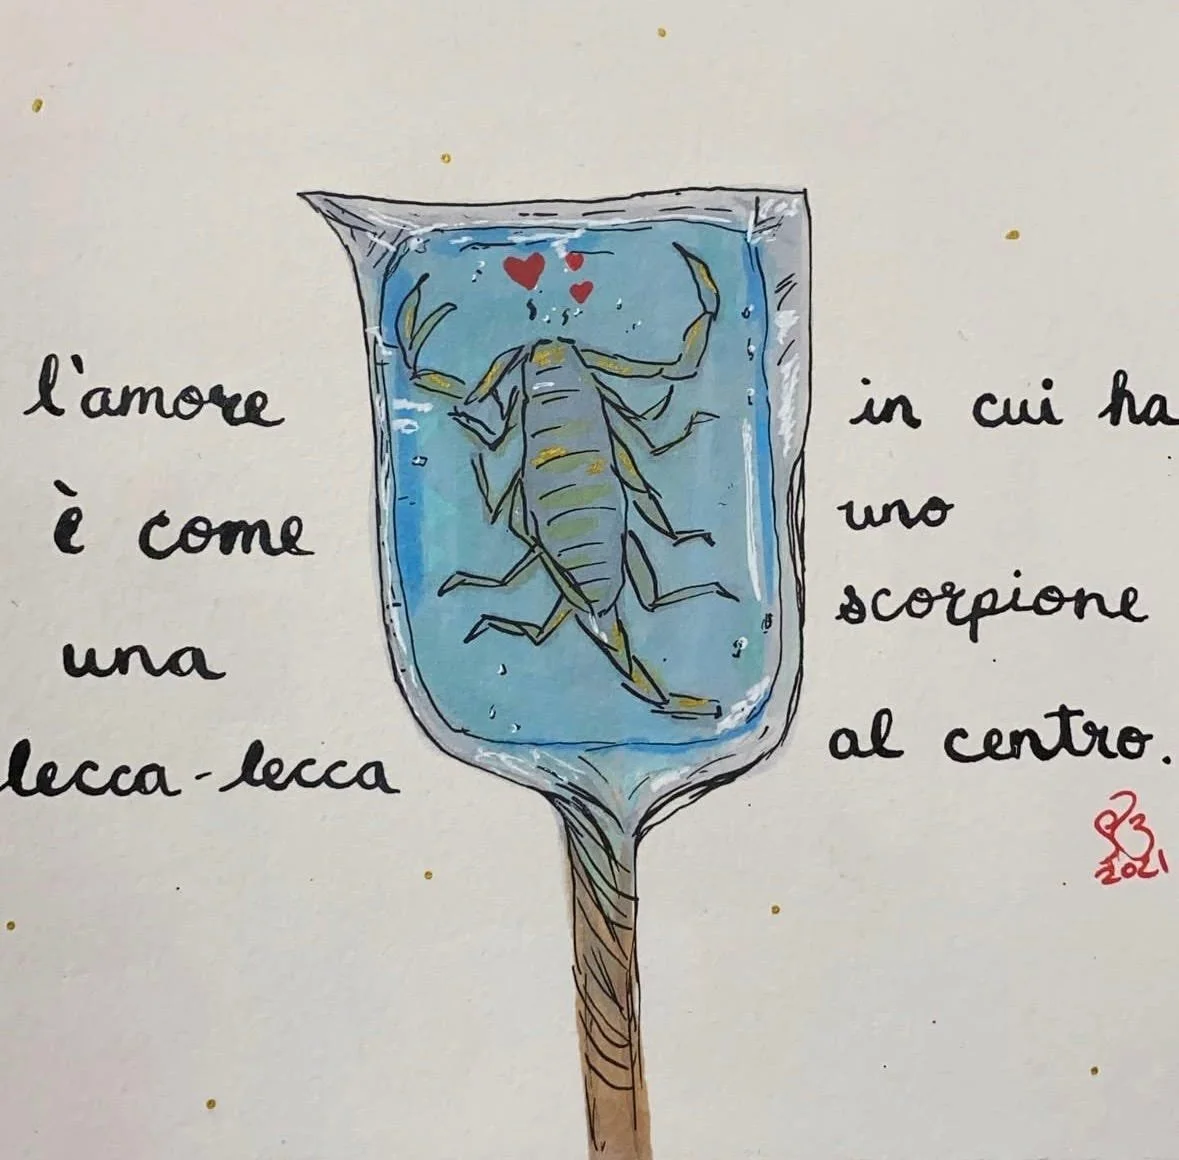 l'amore
è come
una
lecca-lecca
in cui ha
uno
scorpione
al centro.
2021